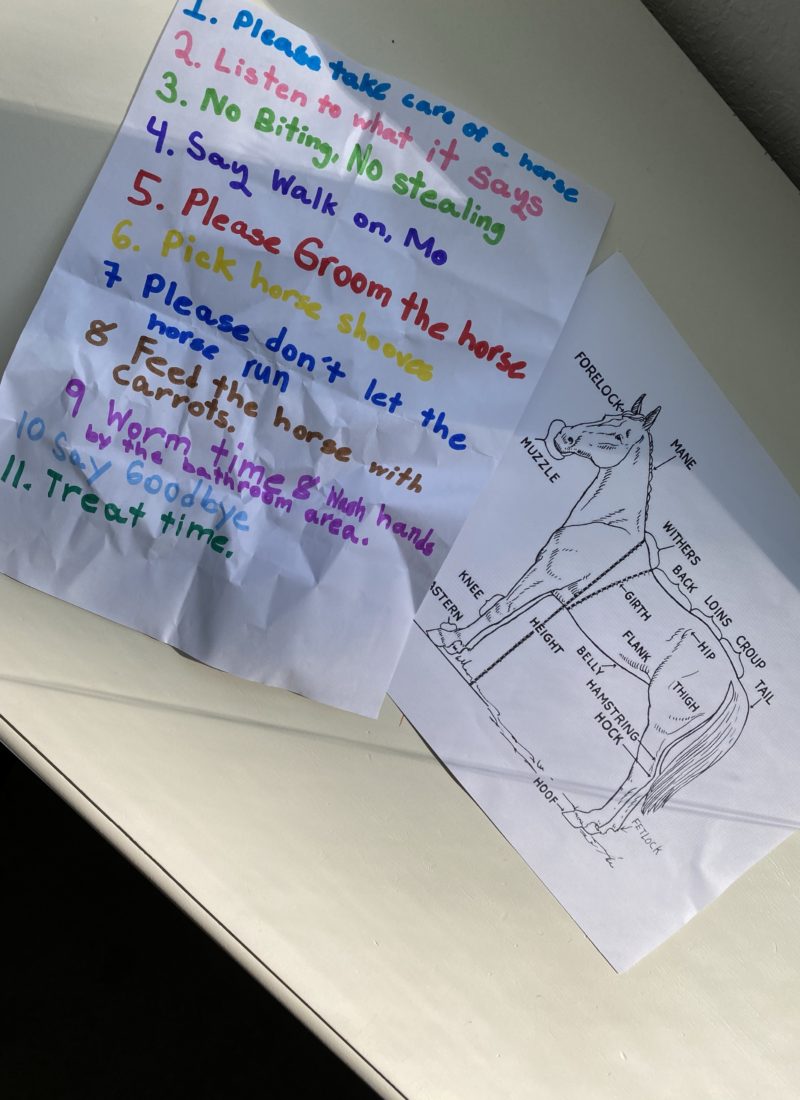 1. Please take care of a horse
2. Listen to what it Says
3. No Biting, No stealing
4. Say Walk on, Mo
5. Please Groom the horse
6. Pick horse shooves
7 Please don't let the
horse run
8 Feed the horse with
carrots.
9 Worm time & Wash hands
by the bathroom area.
10 Say Goodbye
11. Treat time.
FORELOCK
MUZZLE
MANE
WITHERS
BACK
LOINS
CROUP
TAIL
KNEE
GIRTH
HEIGHT
FLANK
HIP
BELLY
THIGH
HAMSTRING
HOCK
HOOF
FETLOCK